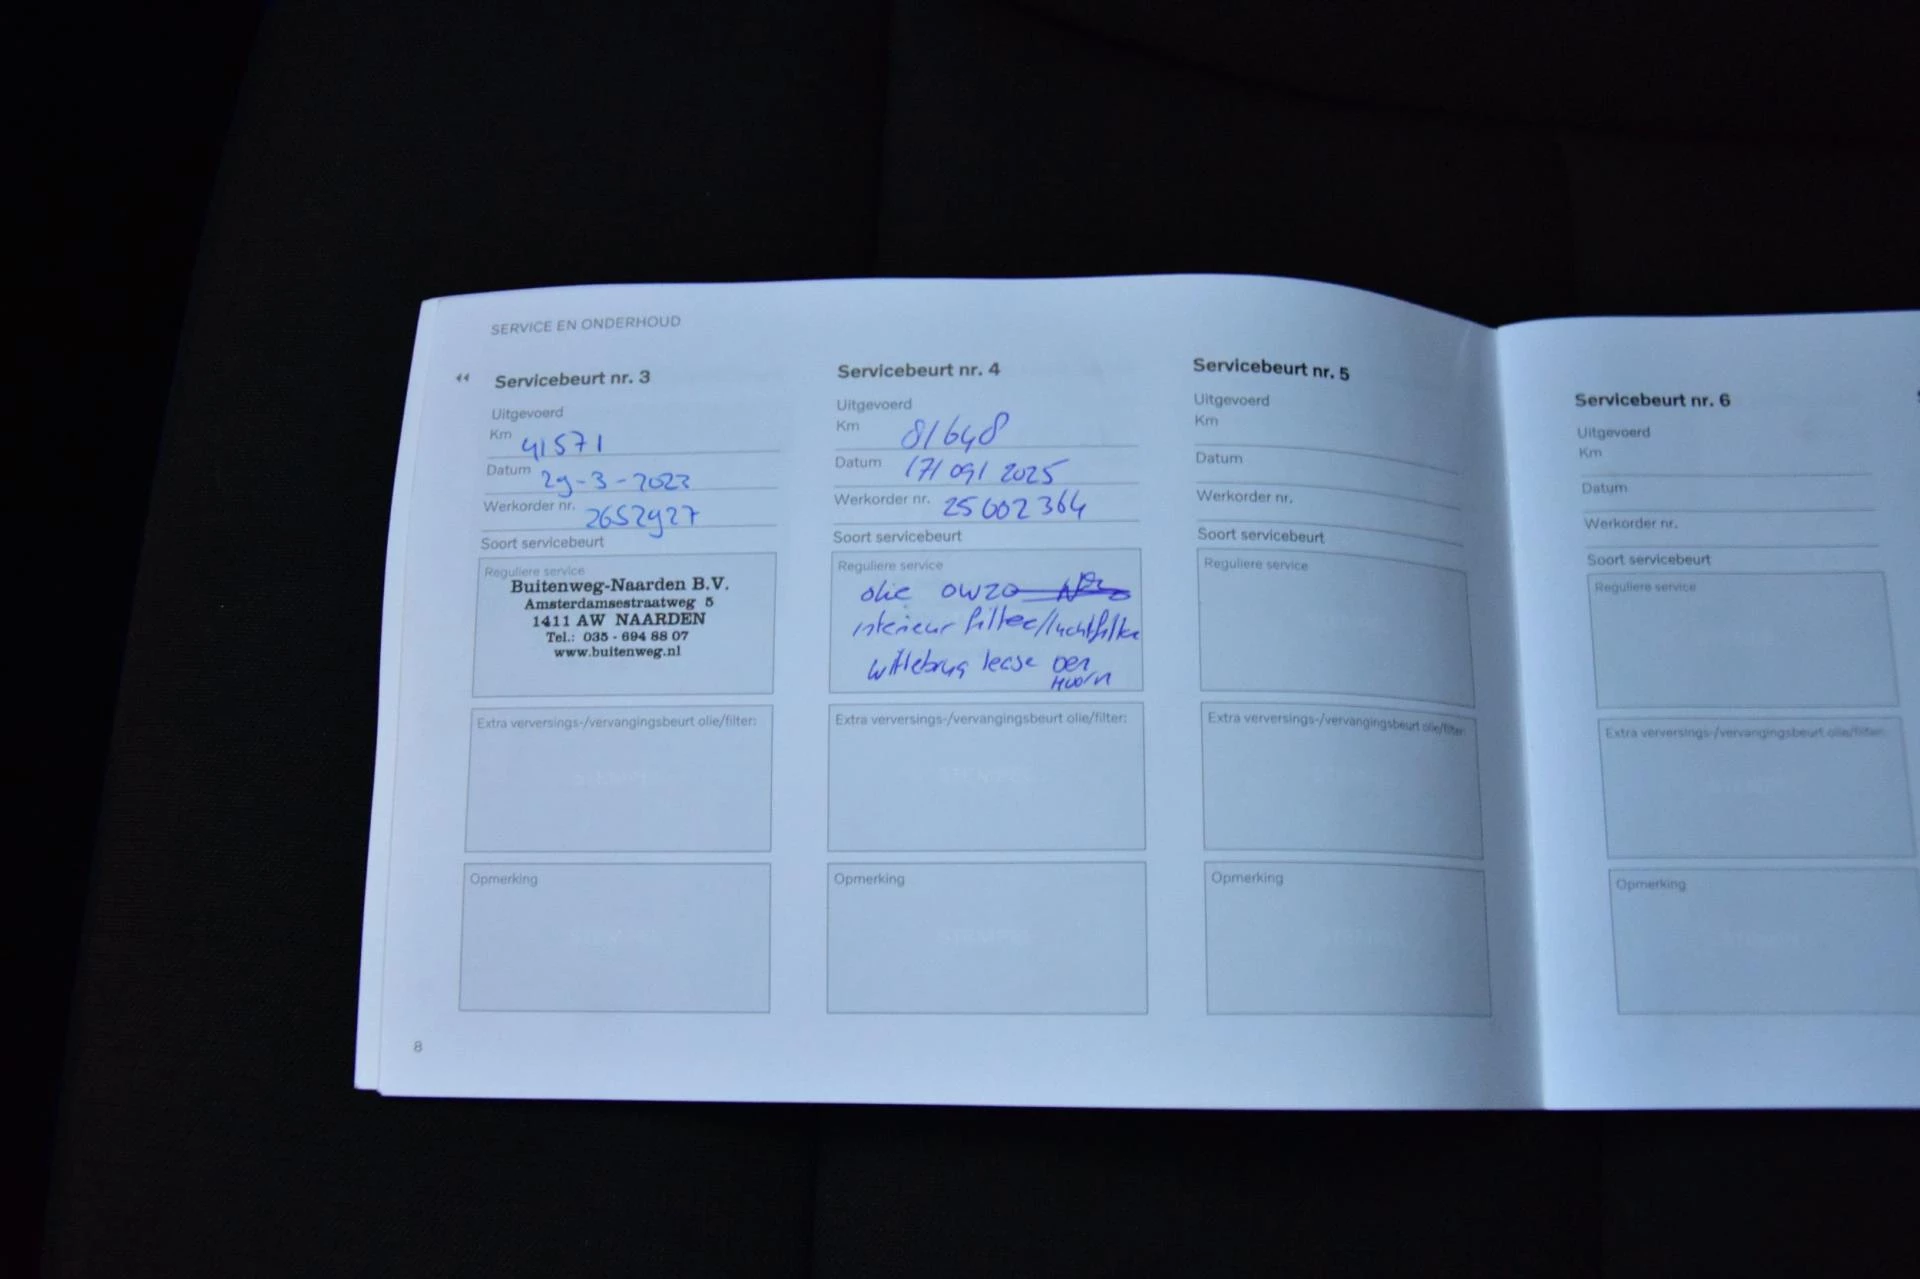 SERVICE EN ONDERHOUD
Servicebeurt nr. 3
Uitgevoerd
Km 41571
Datum 29-3-2023
Werkorder nr. 2652927
Soort servicebeurt
Reguliere service
Buitenweg-Naarden B.V.
Amsterdamsestraatweg 5
1411 AW NAARDEN
Tel.: 035 - 694 88 07
www.buitenweg.nl
Extra verversings-/vervangingsbeurt olie/filter:
Opmerking
Servicebeurt nr. 4
Uitgevoerd
Km 81648
Datum 17/09/2025
Werkorder nr. 25002364
Soort servicebeurt
Reguliere service
olie 0W20
interieur filter/luchtfilter
wittebrug lease Den
Hoorn
Extra verversings-/vervangingsbeurt olie/filter:
STEMPEL
Opmerking
STEMPEL
Servicebeurt nr. 5
Uitgevoerd
Km
Datum
Werkorder nr.
Soort servicebeurt
Reguliere service
Extra verversings-/vervangingsbeurt olie/filter:
Opmerking
Servicebeurt nr. 6
Uitgevoerd
Km
Datum
Werkorder nr.
Soort servicebeurt
Reguliere service
Extra verversings-/vervangingsbeurt olie/filter:
Opmerking
8